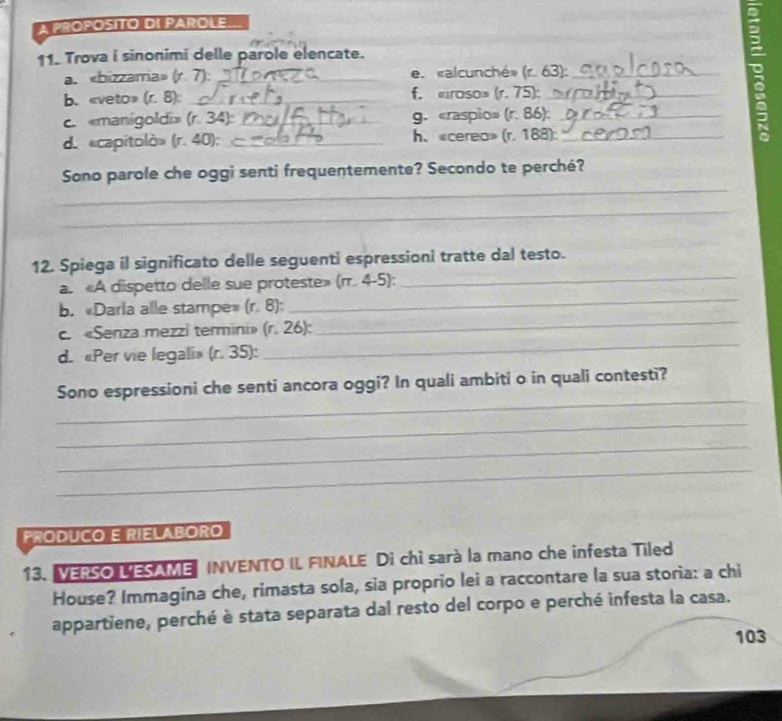 A PROPOSITO DI PAROLE...
11. Trova i sinonimi delle parole elencate.
a. «bizzarria» (r. 7): stranezza
b. «veto» (r. 8): divieto
c. «manigoldi» (r. 34):
d. «capitolò» (r. 40):
e. «alcunché» (r. 63): qualcosa
f. «iroso» (r. 75):
g. «raspìo» (r. 86):
h. «cereo» (r. 188):
Sono parole che oggi senti frequentemente? Secondo te perché?
12. Spiega il significato delle seguenti espressioni tratte dal testo.
a. «A dispetto delle sue proteste» (rr. 4-5):
b. «Darla alle stampe» (r. 8):
c. «Senza mezzi termini» (r. 26):
d. «Per vie legali» (r. 35):
Sono espressioni che senti ancora oggi? In quali ambiti o in quali contesti?
PRODUCO E RIELABORO
13. VERSO L'ESAME INVENTO IL FINALE Di chi sarà la mano che infesta Tiled
House? Immagina che, rimasta sola, sia proprio lei a raccontare la sua storia: a chi
appartiene, perché è stata separata dal resto del corpo e perché infesta la casa.
103
ietanti presenze